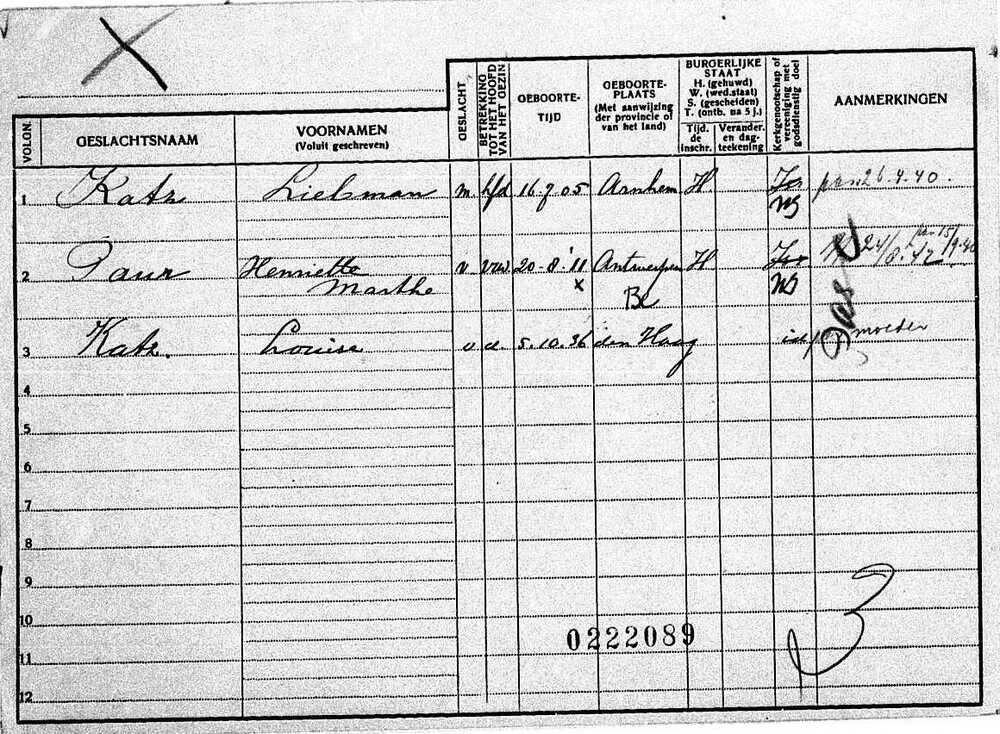 VOLGN.
GESLACHTSNAAM
VOORNAMEN
(Voluit geschreven)
GESLACHT
BETREKKING
TOT HET HOOFD
VAN HET GEZIN
GEBOORTE-
TIJD
GEBOORTE-
PLAATS
(Met aanwijzing
der provincie of
van het land)
BURGERLIJKE
STAAT
H. (gehuwd)
W. (wed.staat)
S. (gescheiden)
T. (ontb. na 5 j.)
Tijd.
de
inschr.
Verander.
en dag-
teekening
Kerkgenootschap of
vereeniging met
godsdienstig doel
AANMERKINGEN
1 Katz Liebman m. hfd 16-7-05 Arnhem H 26.4.40.
NG
2 Henriette v. vrw. 20-8-'11 Antwerpen H
Marthe x Be NG
3 Katz. Louise v. d. 5.10.36 den Haag id moeder
4
5
6
7
8
9
10
0222089
11
12
3